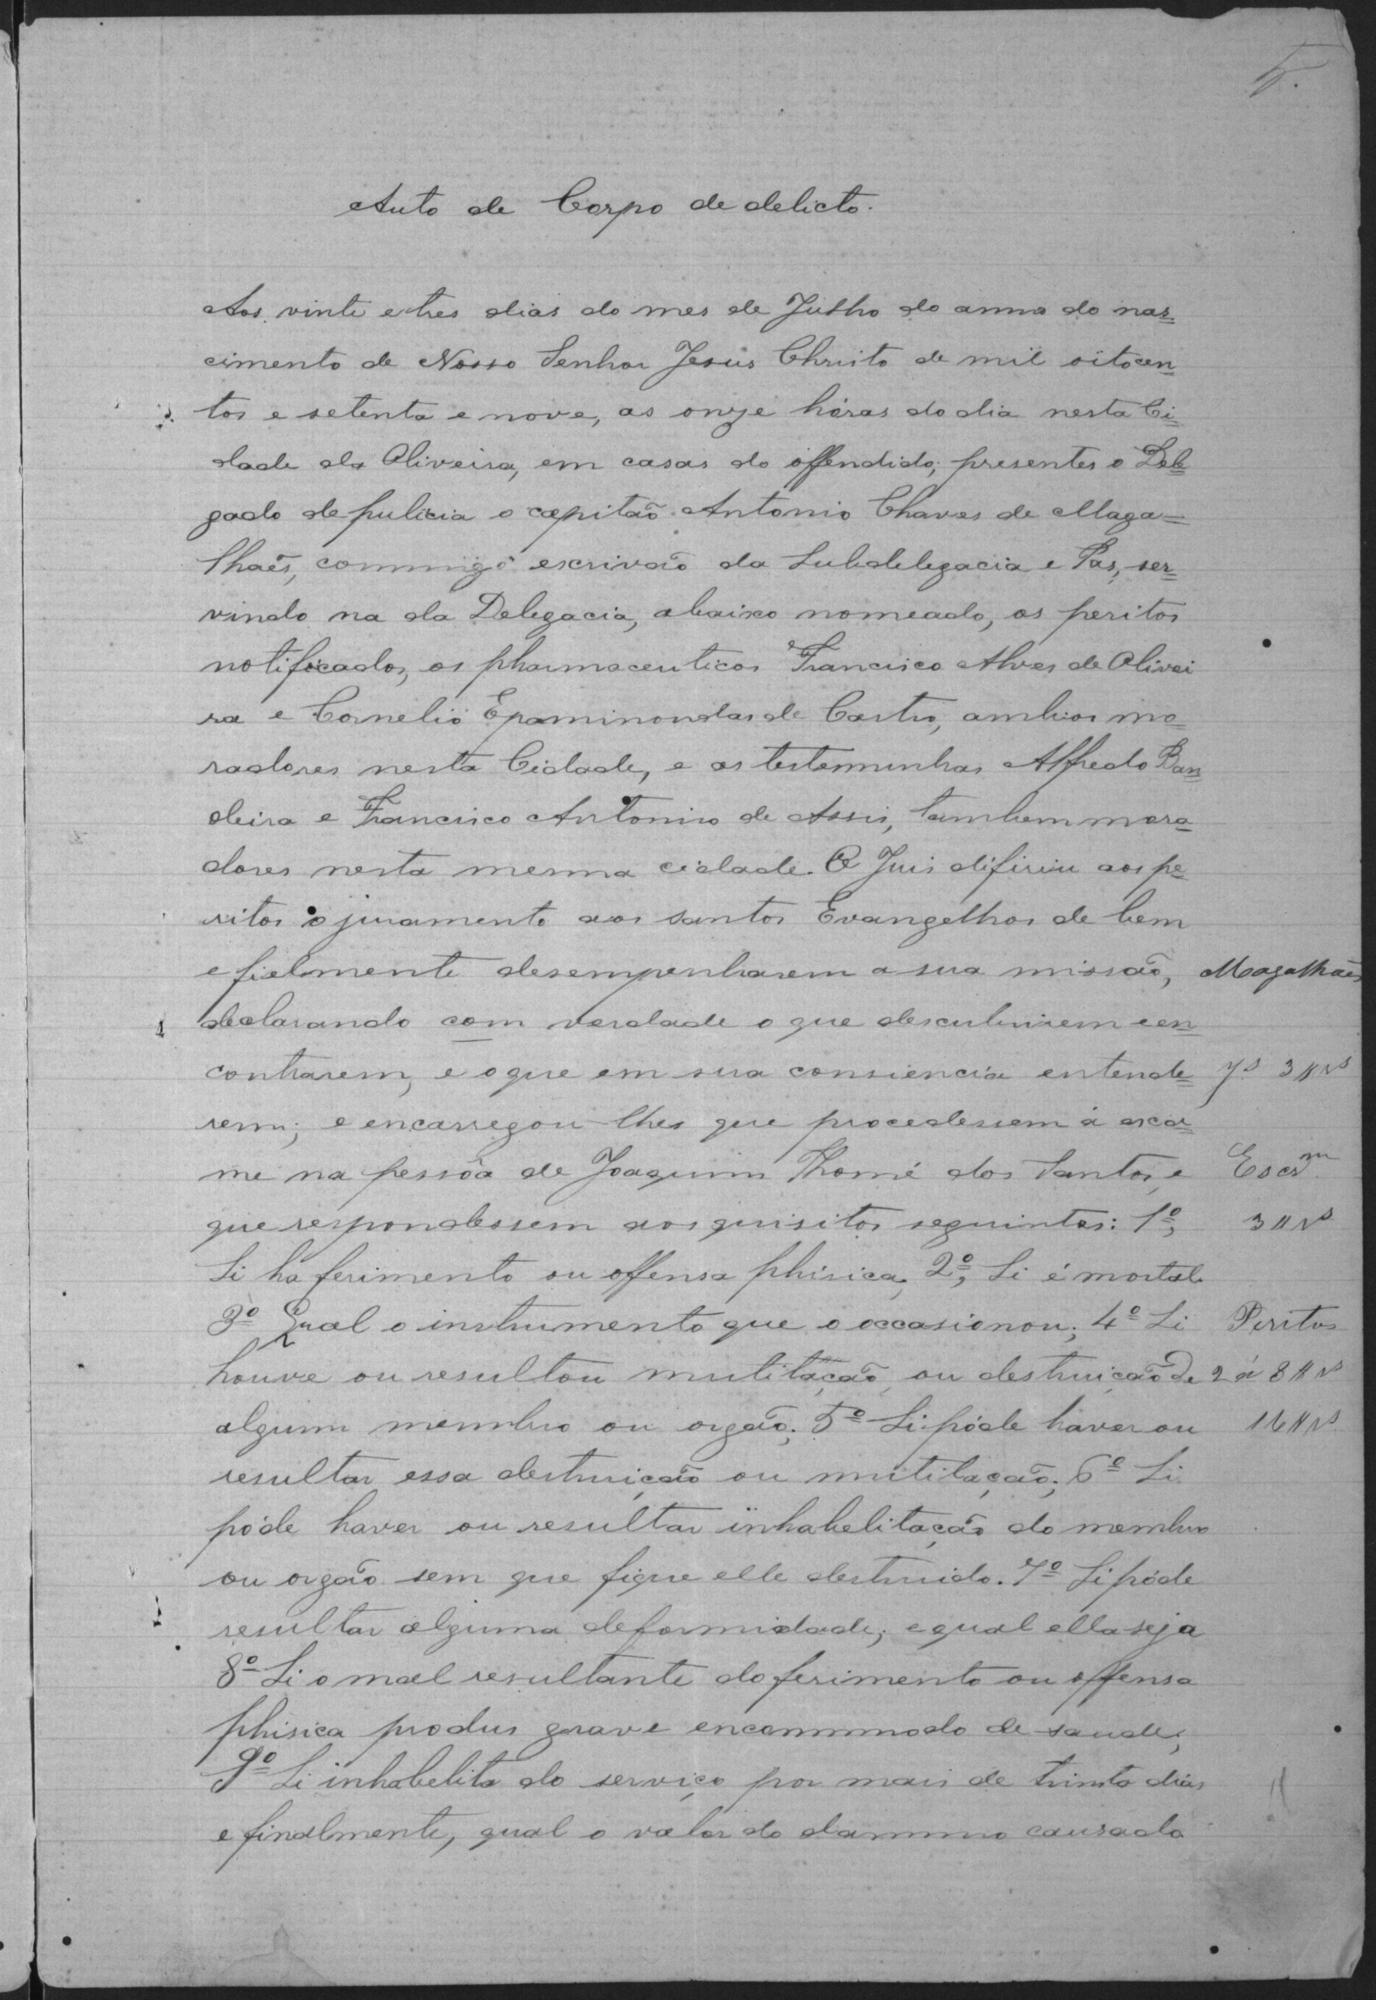 5.
Auto de Corpo de delicto.
Aos vinte e tres dias do mes de Julho do anno do nas=
cimento de Nosso Senhor Jesus Christo de mil oitocen=
tos e setenta e nove, as onze hóras do dia nesta Ci=
dade da Oliveira, em casas do offendido; presentes o Dele=
gado de pulicia o capitão Antonio Chaves de Maga=
lhaês, commigo escrivão da Subdelegacia e Pas, ser=
vindo na da Delegacia, abaixo nomeado, os peritos
notificados, os pharmaceuticos Francisco Alves de Olivei
ra e Cornelio Epaminondas de Castro, ambos mo=
radores nesta Cidade, e as testemunhas Alfredo Ban=
deira e Francisco Antonio de Assis, tambem mora=
dores nesta mesma cidade. O Juis difiriu aos pe=
ritos o juramento aos santos Evangelhos de bem
e fielmente desempenharem a sua missão,
Magalhães
declarando com verdade o que descubrirem e en=
contrarem, e o que em sua consiencia entende=
Js 3#rs
rem; e encarregou-lhes que procedessem á exa=
me na pessôa de Joaquim Thomé dos Santos, e
Escrm
que respondessem aos quisitos seguintes: 1º,
3#rs
Si há ferimento ou offensa phisica; 2º, Si é mortal
3º Qual o instrumento que o occasionou; 4º Si
Peritos
houve ou resultou mutilação ou destruição de
2 á 8#rs
algum membro ou orgão; 5º Si póde haver ou
16#rs
resultar essa destruição ou mutilação; 6º Si
póde haver ou resultar inhabelitação do membro
ou orgão sem que fique elle destruido. 7º Si póde
resultar alguma deformidade; e qual ella seja
8º Si o mal resultante do ferimento ou offensa
phisica produs grave encommmodo de saude;
9º Si inhabelita do serviço por mais de trinta dias
e finalmente, qual o valor do dammno causado